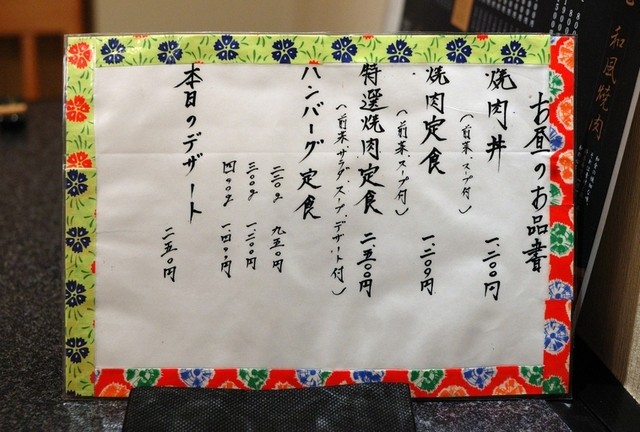 お昼のお品書
焼肉丼 一、二〇〇円
（前菜、スープ付）
焼肉定食 一、二〇〇円
（前菜、スープ付）
特選焼肉定食 二、五〇〇円
（前菜、サラダ、スープ、デザート付）
ハンバーグ定食
二〇〇g 九五〇円
三〇〇g 一、二〇〇円
四〇〇g 一、四〇〇円
本日のデザート
二五〇円
和風焼肉